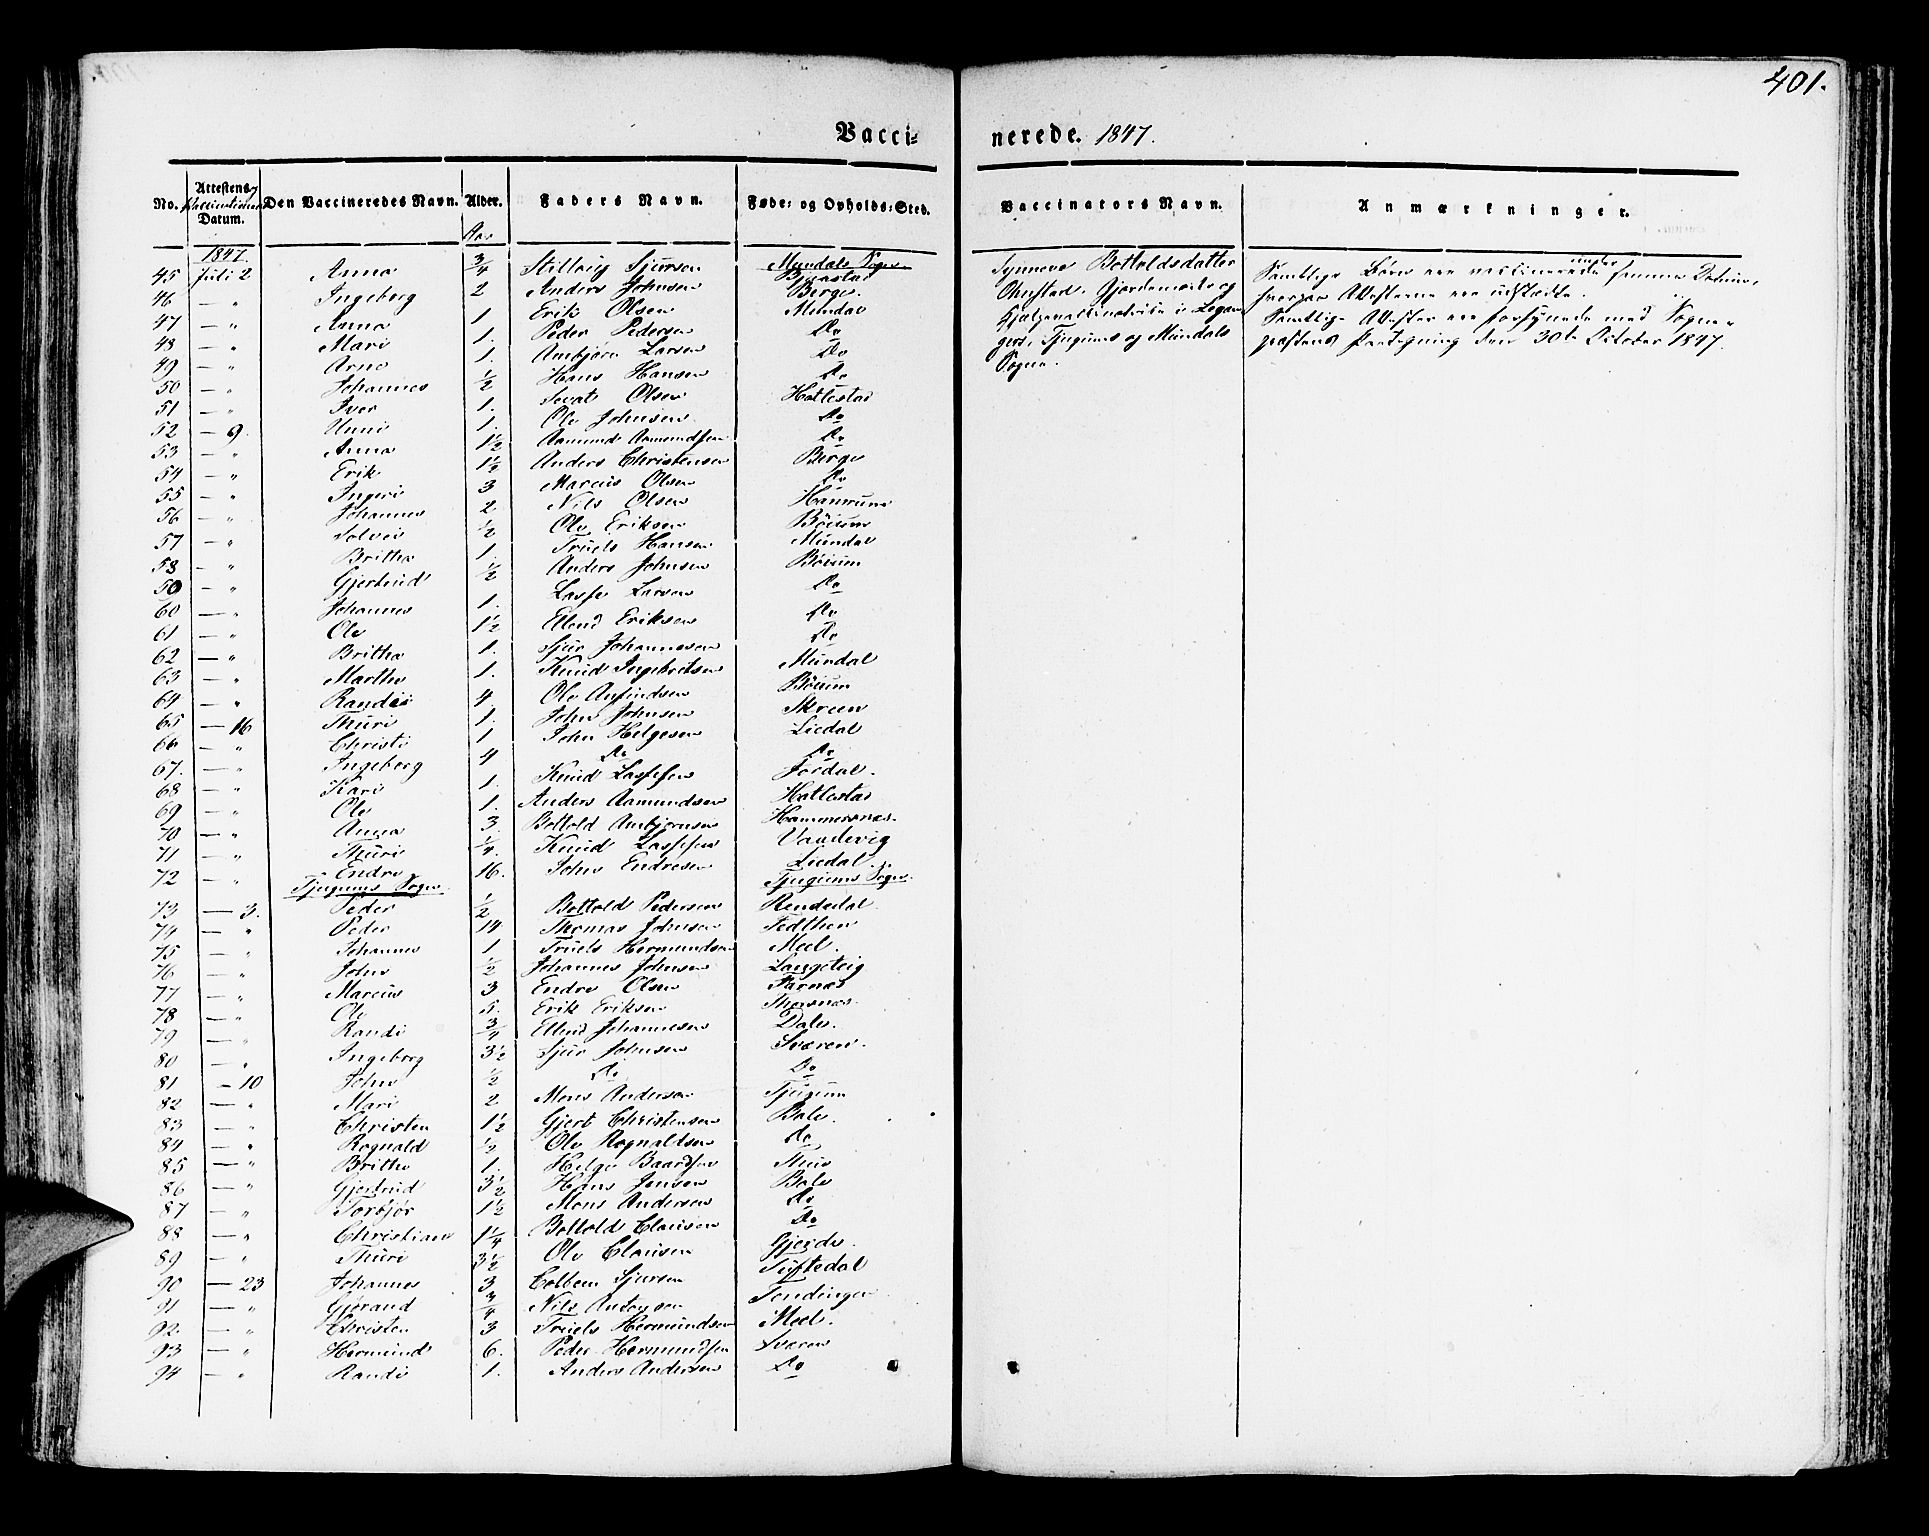 401.
Vacci= nerede. 1847.
No. Attestens Vaccinations Datum. Den Vaccineredes Navn. Alder. Faders Navn. Føde= og Opholds=Sted. Vaccinators Navn. Anmærkninger.
Aar
1847. Mundals Sogn
45 Juli 2 Anna 3/4 Sjursen Bjåstad
46 — " Ingeborg 2 Anders Johnsen Berge
47 — " Anna 1. Erik Olsen Mundal
48 — " Mari 1. Peder Pedersen Do
49 — " Arne 1. Ambjørn Larsen Do
50 — " Johannes 1/2 Hans Hansen Do
51 — " Iver 1. Sevat Olsen Hatlestad
52 — 9. Unni 1. Ole Johnsen Do
53 — " Anna 1 1/2 Aamund Aamundsen Do
54 — " Erik 1 1/2 Anders Christensen Berge
55 — " Ingeri 3 Marcus Olsen Do
56 — " Johannes 2 Nils Olsen Hamrum
57 — " Solvei 1/2 Ole Eriksen Böium
58 — " Britha 1. Truels Hansen Mundal
59 — " Gjertrud 1/2 Anders Johnsen Böium
60 — " Johannes 1. Lasse Larsen Do
61 — " Ole 1 1/2 Ellend Eriksen Do
62 — " Britha 1. Sjur Johannesen Do
63 — " Martha 1. Knud Ingebritsen Mundal
64 — " Randi 4 Ole Anfindsen Böium
65 — 16 Thuri 1. John Johnsen Skreen
66 — " Christi 1 John Helgesen Liedal
67. — " Ingeborg 4 Do Do
68 — " Kari 1. Knud Lassesen Jordal.
69 — " Ole 1. Anders Aamundsen Hatlestad
70 — " Anna 3. Bottold Ambjørnsen Hammersnæs.
71 — " Thuri 1/4. Knud Lassesen Vandevig
72 — " Endre 16. John Endresen Liedal.
Tjugums Sogn. Tjugums Sogn.
73 — 3. Peder 1/2 Bottold Pedersen Rendedal
74 — " Peder 14 Thomas Johnsen Fedthen
75 — " Johannes 1 Truels Hermundsen Meel.
76 — " John 1/2 Johannes Johnsen Langeteig
77 — " Marcus 3 Endre Olsen Farnæs
78 — " Ole 5. Erik Eriksen Thorsnæs.
79 — " Randi 3/4 Ellend Johannesen Dale.
80 " Ingeborg 3 1/2 Sjur Johnsen Sværen.
81 — 10 John 1/2 Do Do
82 — " Mari 2 Mons Andersen Tjugum
83 — " Christen 1 1/2 Gjert Christensen Bale.
84 — " Rognald 1/2 Ole Rognaldsen Do
85 — " Britha 1. Helge Baardsen
86 — " Gjertrud 3 1/2 Hans Jensen Bale
87 — " Torbjør 1 1/2 Mons Andersen Do
88 — " Christiane 1 1/4 Bottold Clausen Do
89 — " Thuri 3 1/2 Ole Clausen Gjerde.
90 — 23 Johannes 3 Colben Sjursen Tuftedal
91 — " Gjørand 3/4 Nils Antonsen
92. — " Christen 3 Truels Hermundsen Meel.
93 — " Hermund 6. Peder Hermundsen Sværen
94 — " Randi 1. Anders Andersen Do
Synneve Bottoldsdatter
Ohnstad, Gjordemoder og
Hjælpevaccinatrice i Legan-
gers, Tjugums og Mundals
Sogne.
Samtlige Børn ere vaccinerede under samme Datum,
hvorpaa Attesterne ere udstædte.
Samtlige Attester ere forsynede med Sogne-
præstens Paategning den 30te October 1847.